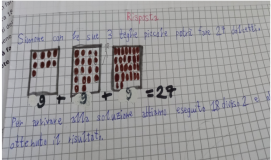 Risposta
Simone con le sue 3 teglie piccole potrà fare 27 dolcetti.
9 + 9 + 9 = 27
Per arrivare alla soluzione abbiamo eseguito 18 diviso 2 e
ottenuto il risultato.